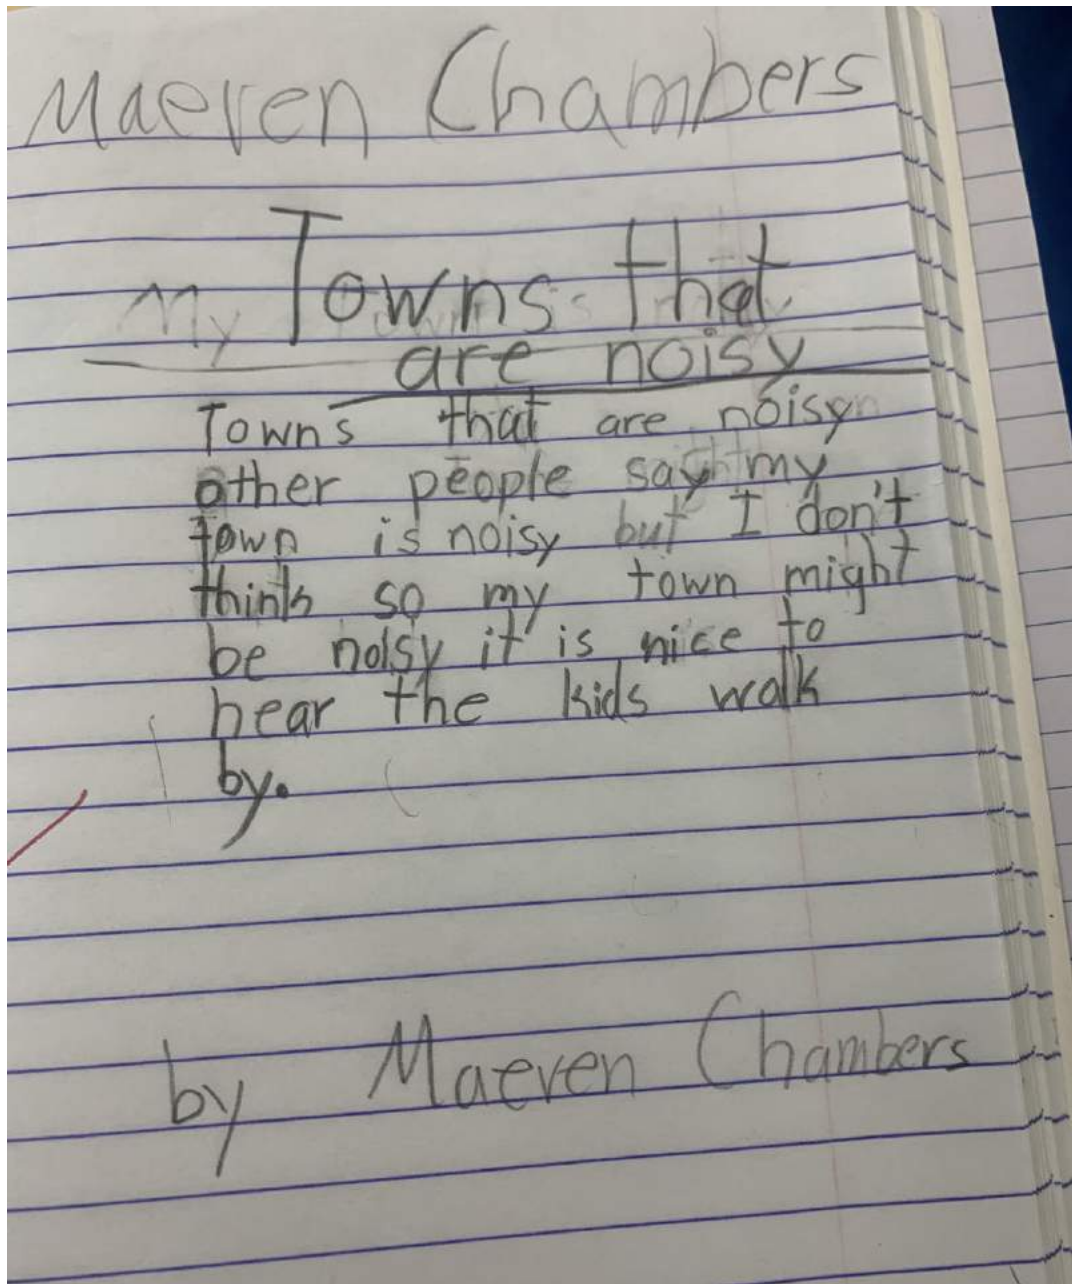 Maeven Chambers
My Towns that
are noisy
Towns that are noisy
other people say my
town is noisy but I don't
think so my town might
be noisy it is nice to
hear the kids walk
by.
by Maeven Chambers